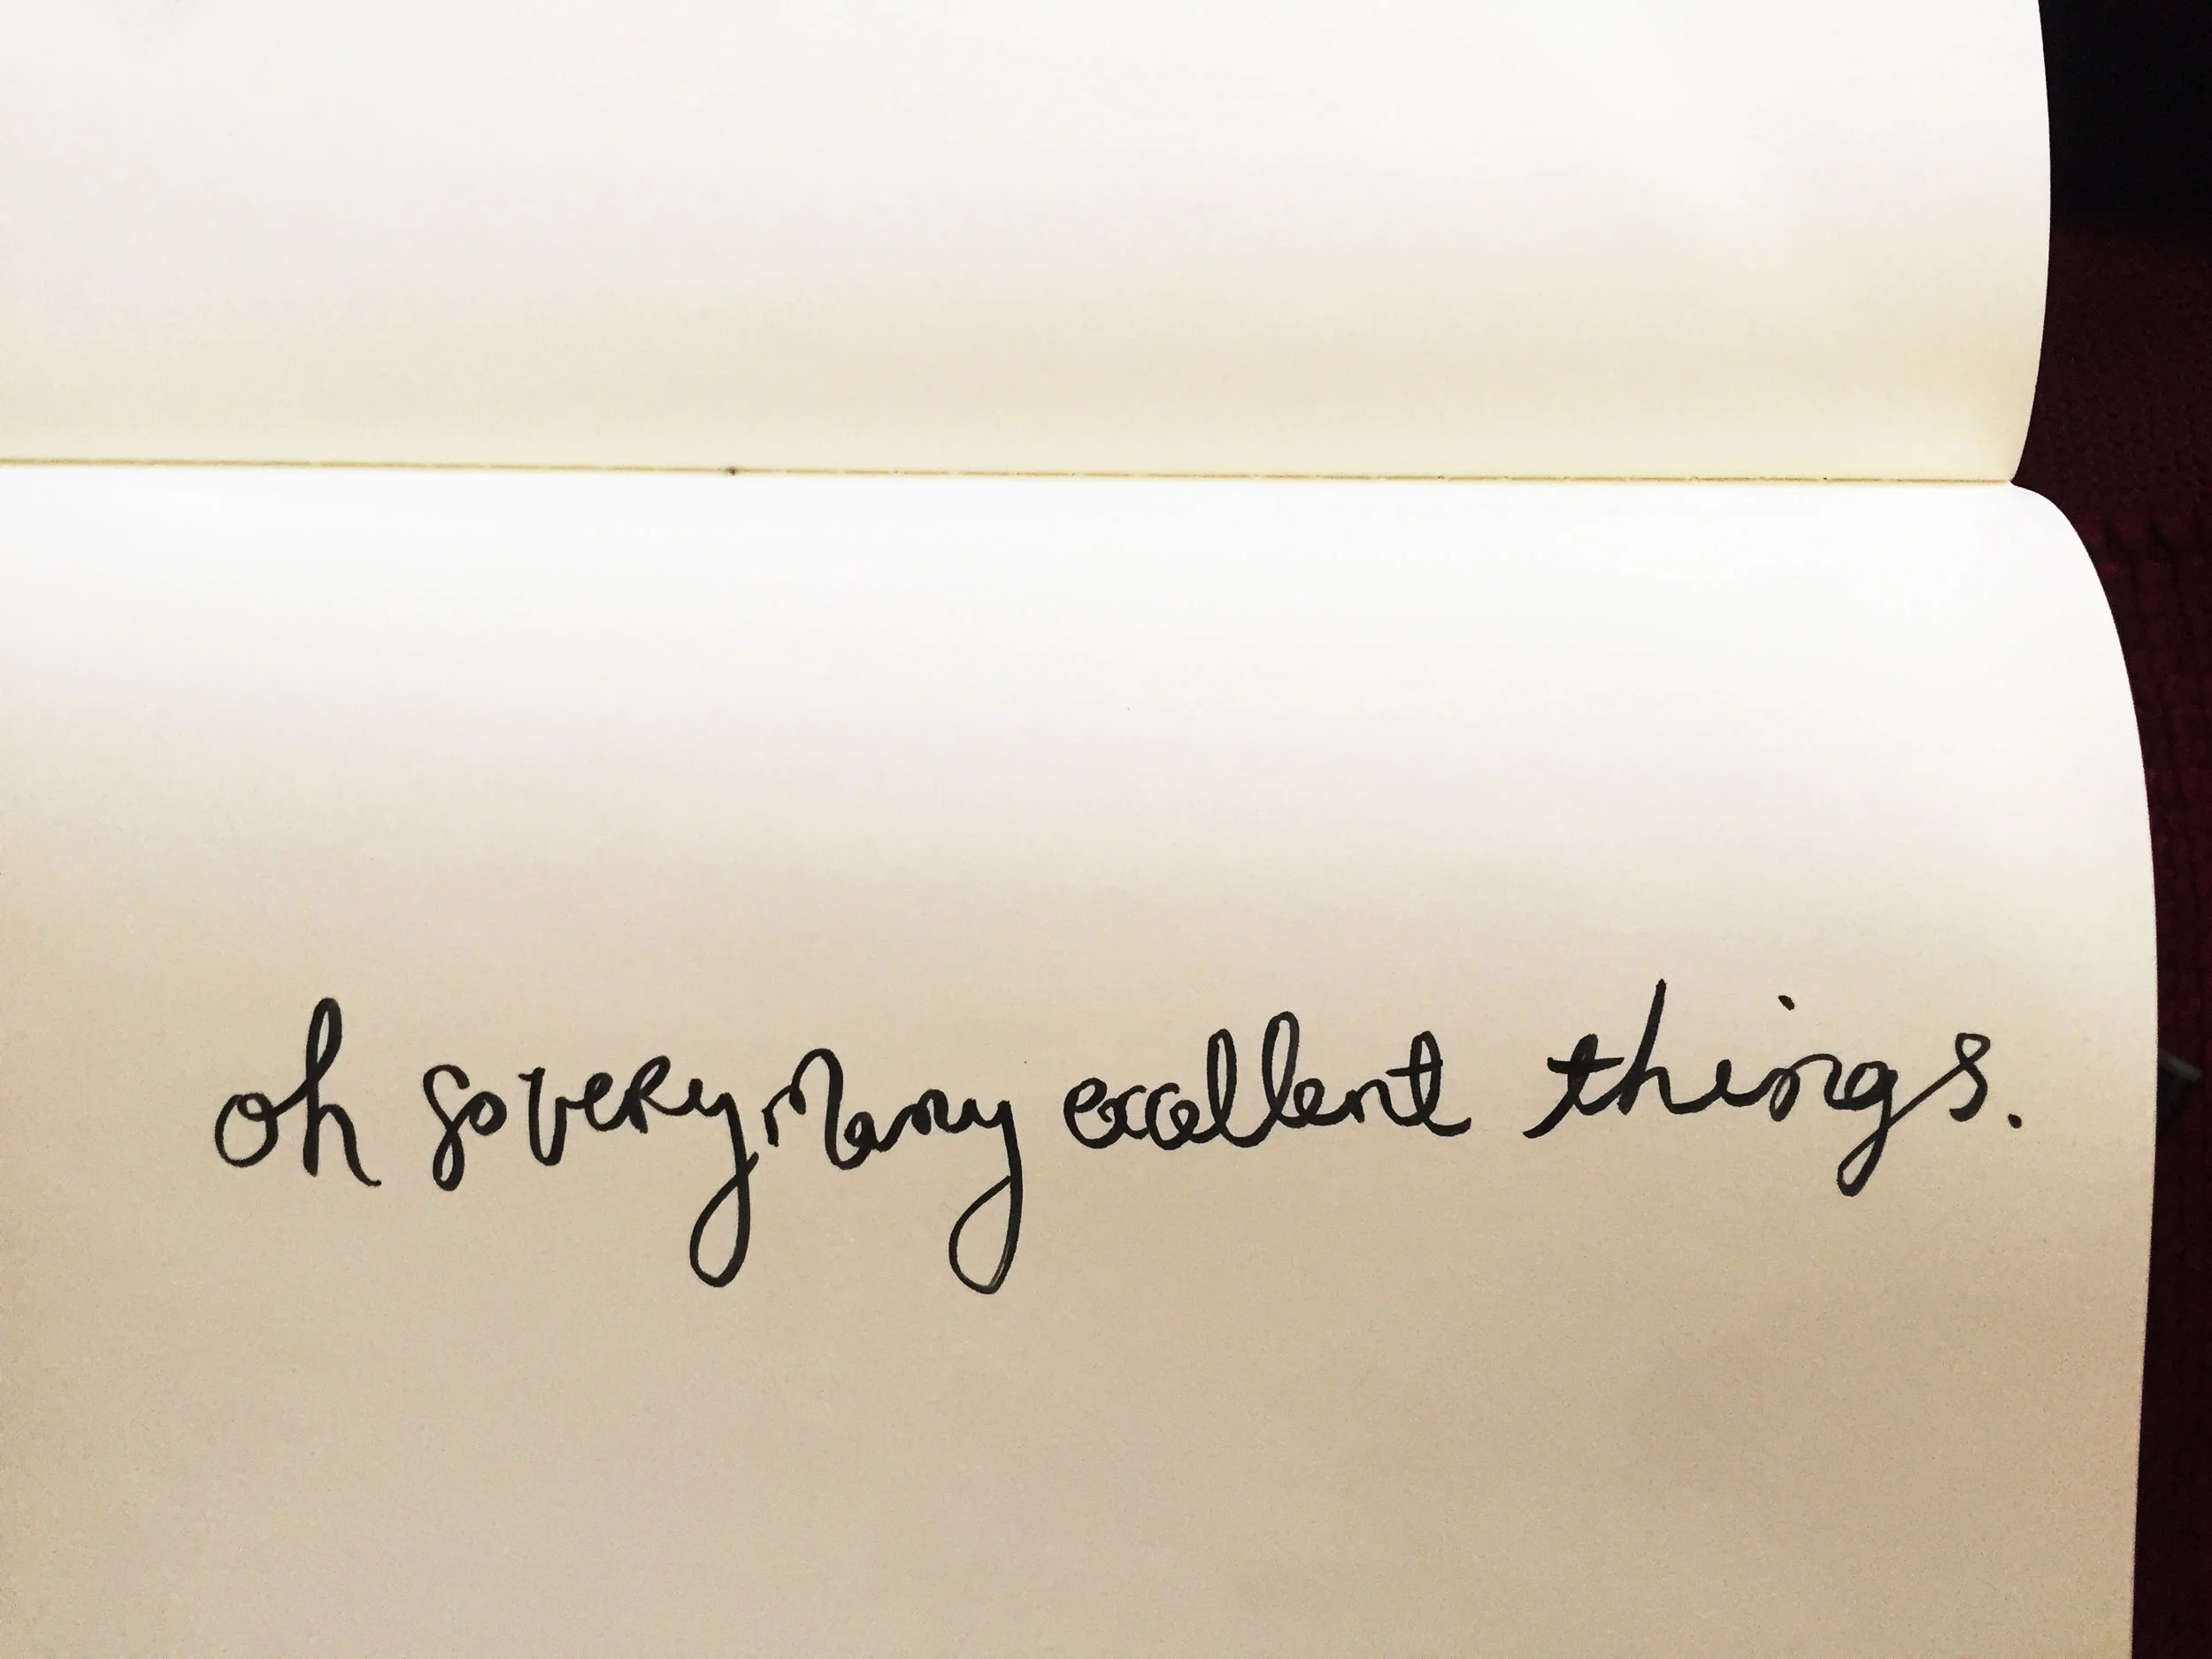 oh so very many excellent things.